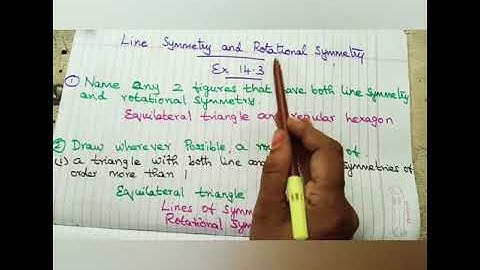 Line Symmetry and Rotational Symmetry
Ex 14.3
① Name any 2 figures that have both line symmetry
and rotational symmetry.
Equilateral triangle and regular hexagon
② Draw wherever Possible, a of
(i) a triangle with both line and symmetries of
order more than 1
Equilateral triangle
Lines of
Rotational